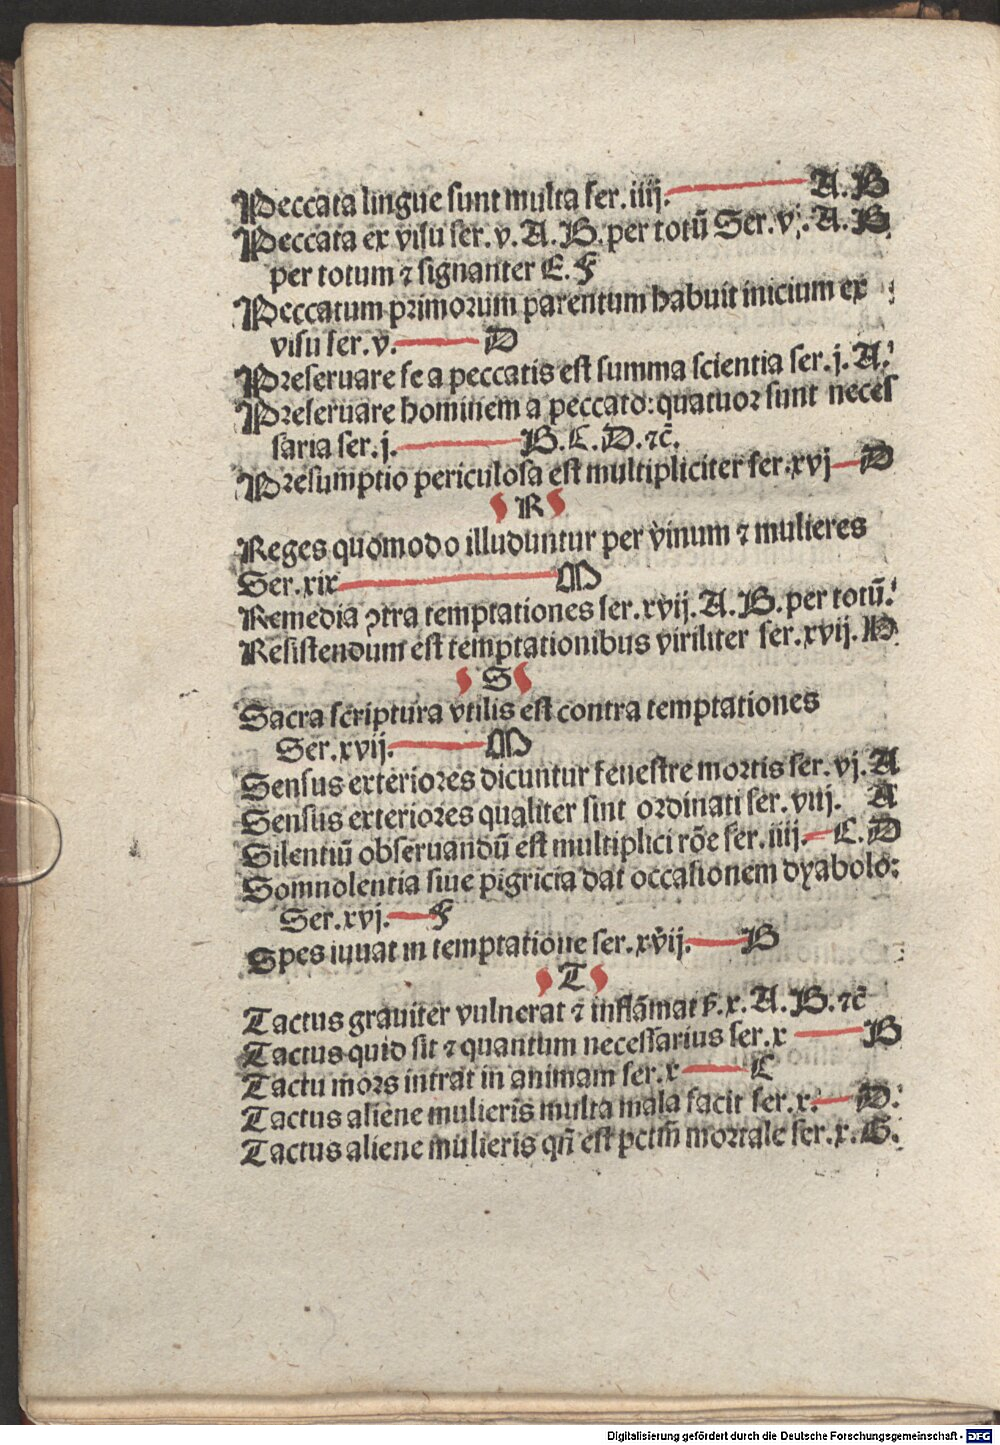 Peccata lingue sunt multa ser. iiij. A. B
Peccata ex visu ser. v. A. B. per totū Ser. vj. A. B
per totum ⁊ signanter E. F
Peccatum primorum parentum habuit inicium ex
visu ser. v. D
Preseruare se a peccatis est summa scientia ser. j. A.
Preseruare hominem a peccato: quatuor sunt neces
saria ser. j. B. C. D. ⁊c̄.
Presumptio periculosa est multipliciter ser. xvj D
R
Reges quomodo illuduntur per vinum ⁊ mulieres
Ser. xix M
Remedia ꝯtra temptationes ser. xvij. A. B. per totū.
Resistendum est temptationibus viriliter ser. xvij. H
S
Sacra scriptura vtilis est contra temptationes
Ser. xvij. M
Sensus exteriores dicuntur fenestre mortis ser. vj. A
Sensus exteriores qualiter sint ordinati ser. viij. A
Silentiū obseruandū est multiplici rōe ser. iiij. C. D
Somnolentia siue pigricia dat occasionem dyabolo:
Ser. xvj. F
Spes iuuat in temptatione ser. xvij. B
T
Tactus grauiter vulnerat ⁊ inflāmat s. x. A. B. ⁊c̄
Tactus quid sit ⁊ quantum necessarius ser. x B
Tactu mors intrat in animam ser. x C
Tactus aliene mulieris multa mala facit ser. x. D.
Tactus aliene mulieris qn̄ est pctm̄ mortale ser. x. G.
Digitalisierung gefördert durch die Deutsche Forschungsgemeinschaft - DFG